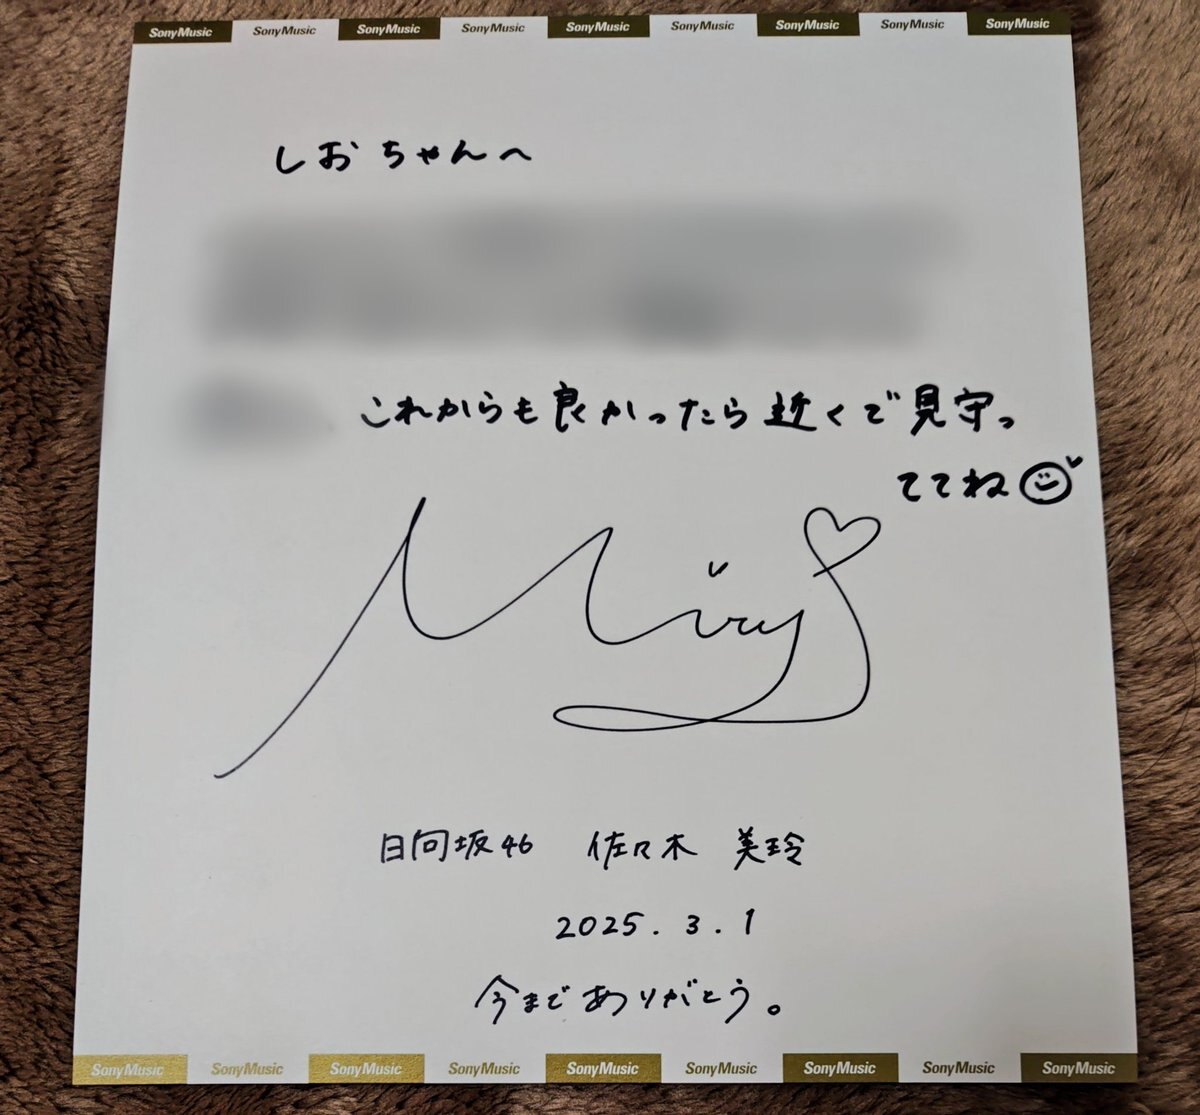 SonyMusic SonyMusic SonyMusic SonyMusic SonyMusic SonyMusic SonyMusic SonyMusic SonyMusic
しおちゃんへ
これからも良かったら近くで見守っ
ててね
Miry
日向坂46 佐々木 美玲
2025.3.1
今までありがとう。
SonyMusic SonyMusic SonyMusic SonyMusic SonyMusic SonyMusic SonyMusic SonyMusic SonyMusic